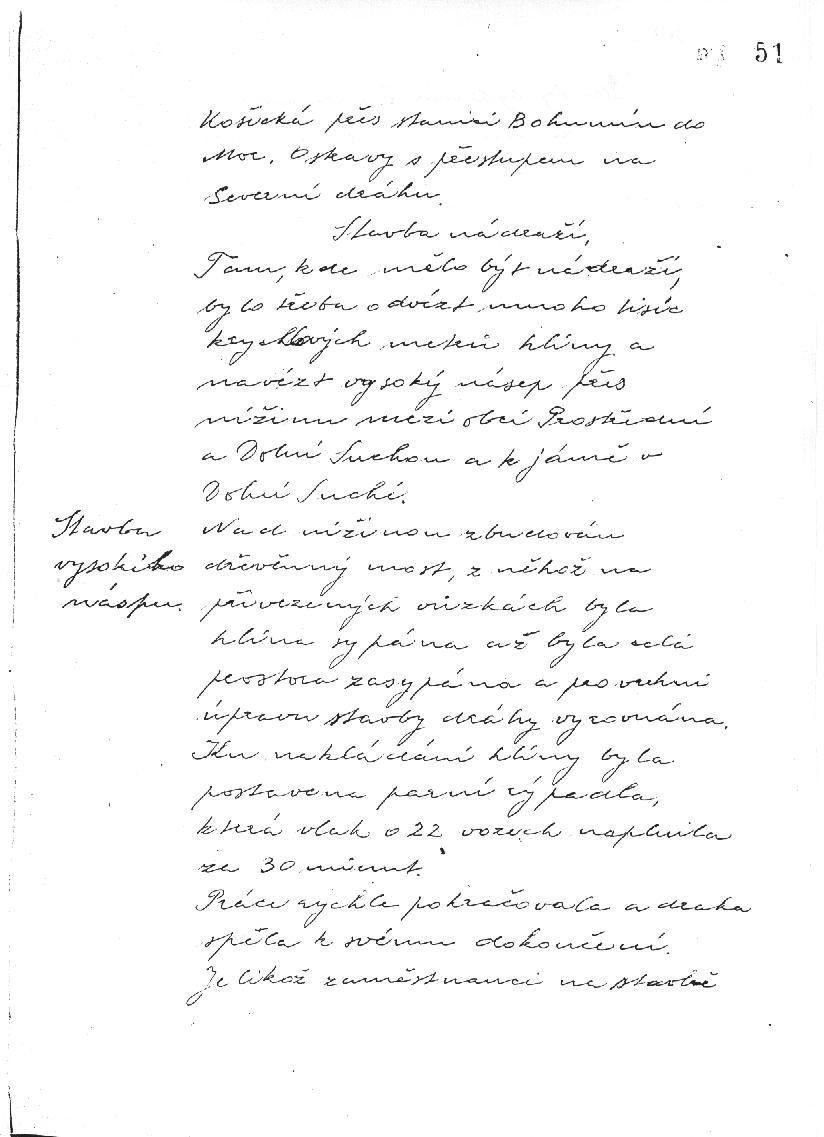 51
Košická přes stanici Bohumín do
Mor. Ostravy s přestupem na
Severní dráhu.
Stavba nádraží,
Tam, kde mělo být nádraží,
bylo třeba odvézt mnoho tisíc
krychlových metrů hlíny a
navézt vysoký násep přes
nížinu mezi obcí Prostřední
a Dolní Suchou a k jámě v
Dolní Suché.
Stavba
vysokého
náspu.
Nad nížinou zbudován
dřevěnný most, z něhož na
přivezených vozkách byla
hlína sypána až byla celá
prostora zasypána a pro vrchní
úpravu stavby dráhy vyrovnána.
Ku nakládání hlíny byla
postavena parní rýpadla,
která vlak o 22 vozech naplnila
za 30 minut.
Práce rychle pokračovala a draha
spěla k svému dokončení.
Jelikož zaměstnanci na stavbě